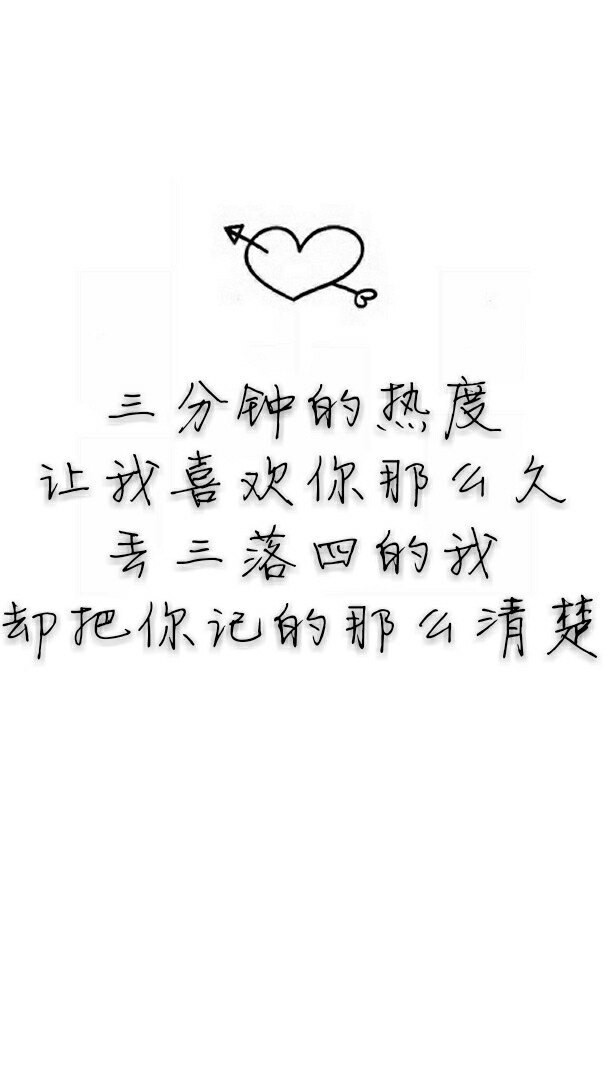 三分钟的热度
让我喜欢你那么久
丢三落四的我
却把你记的那么清楚